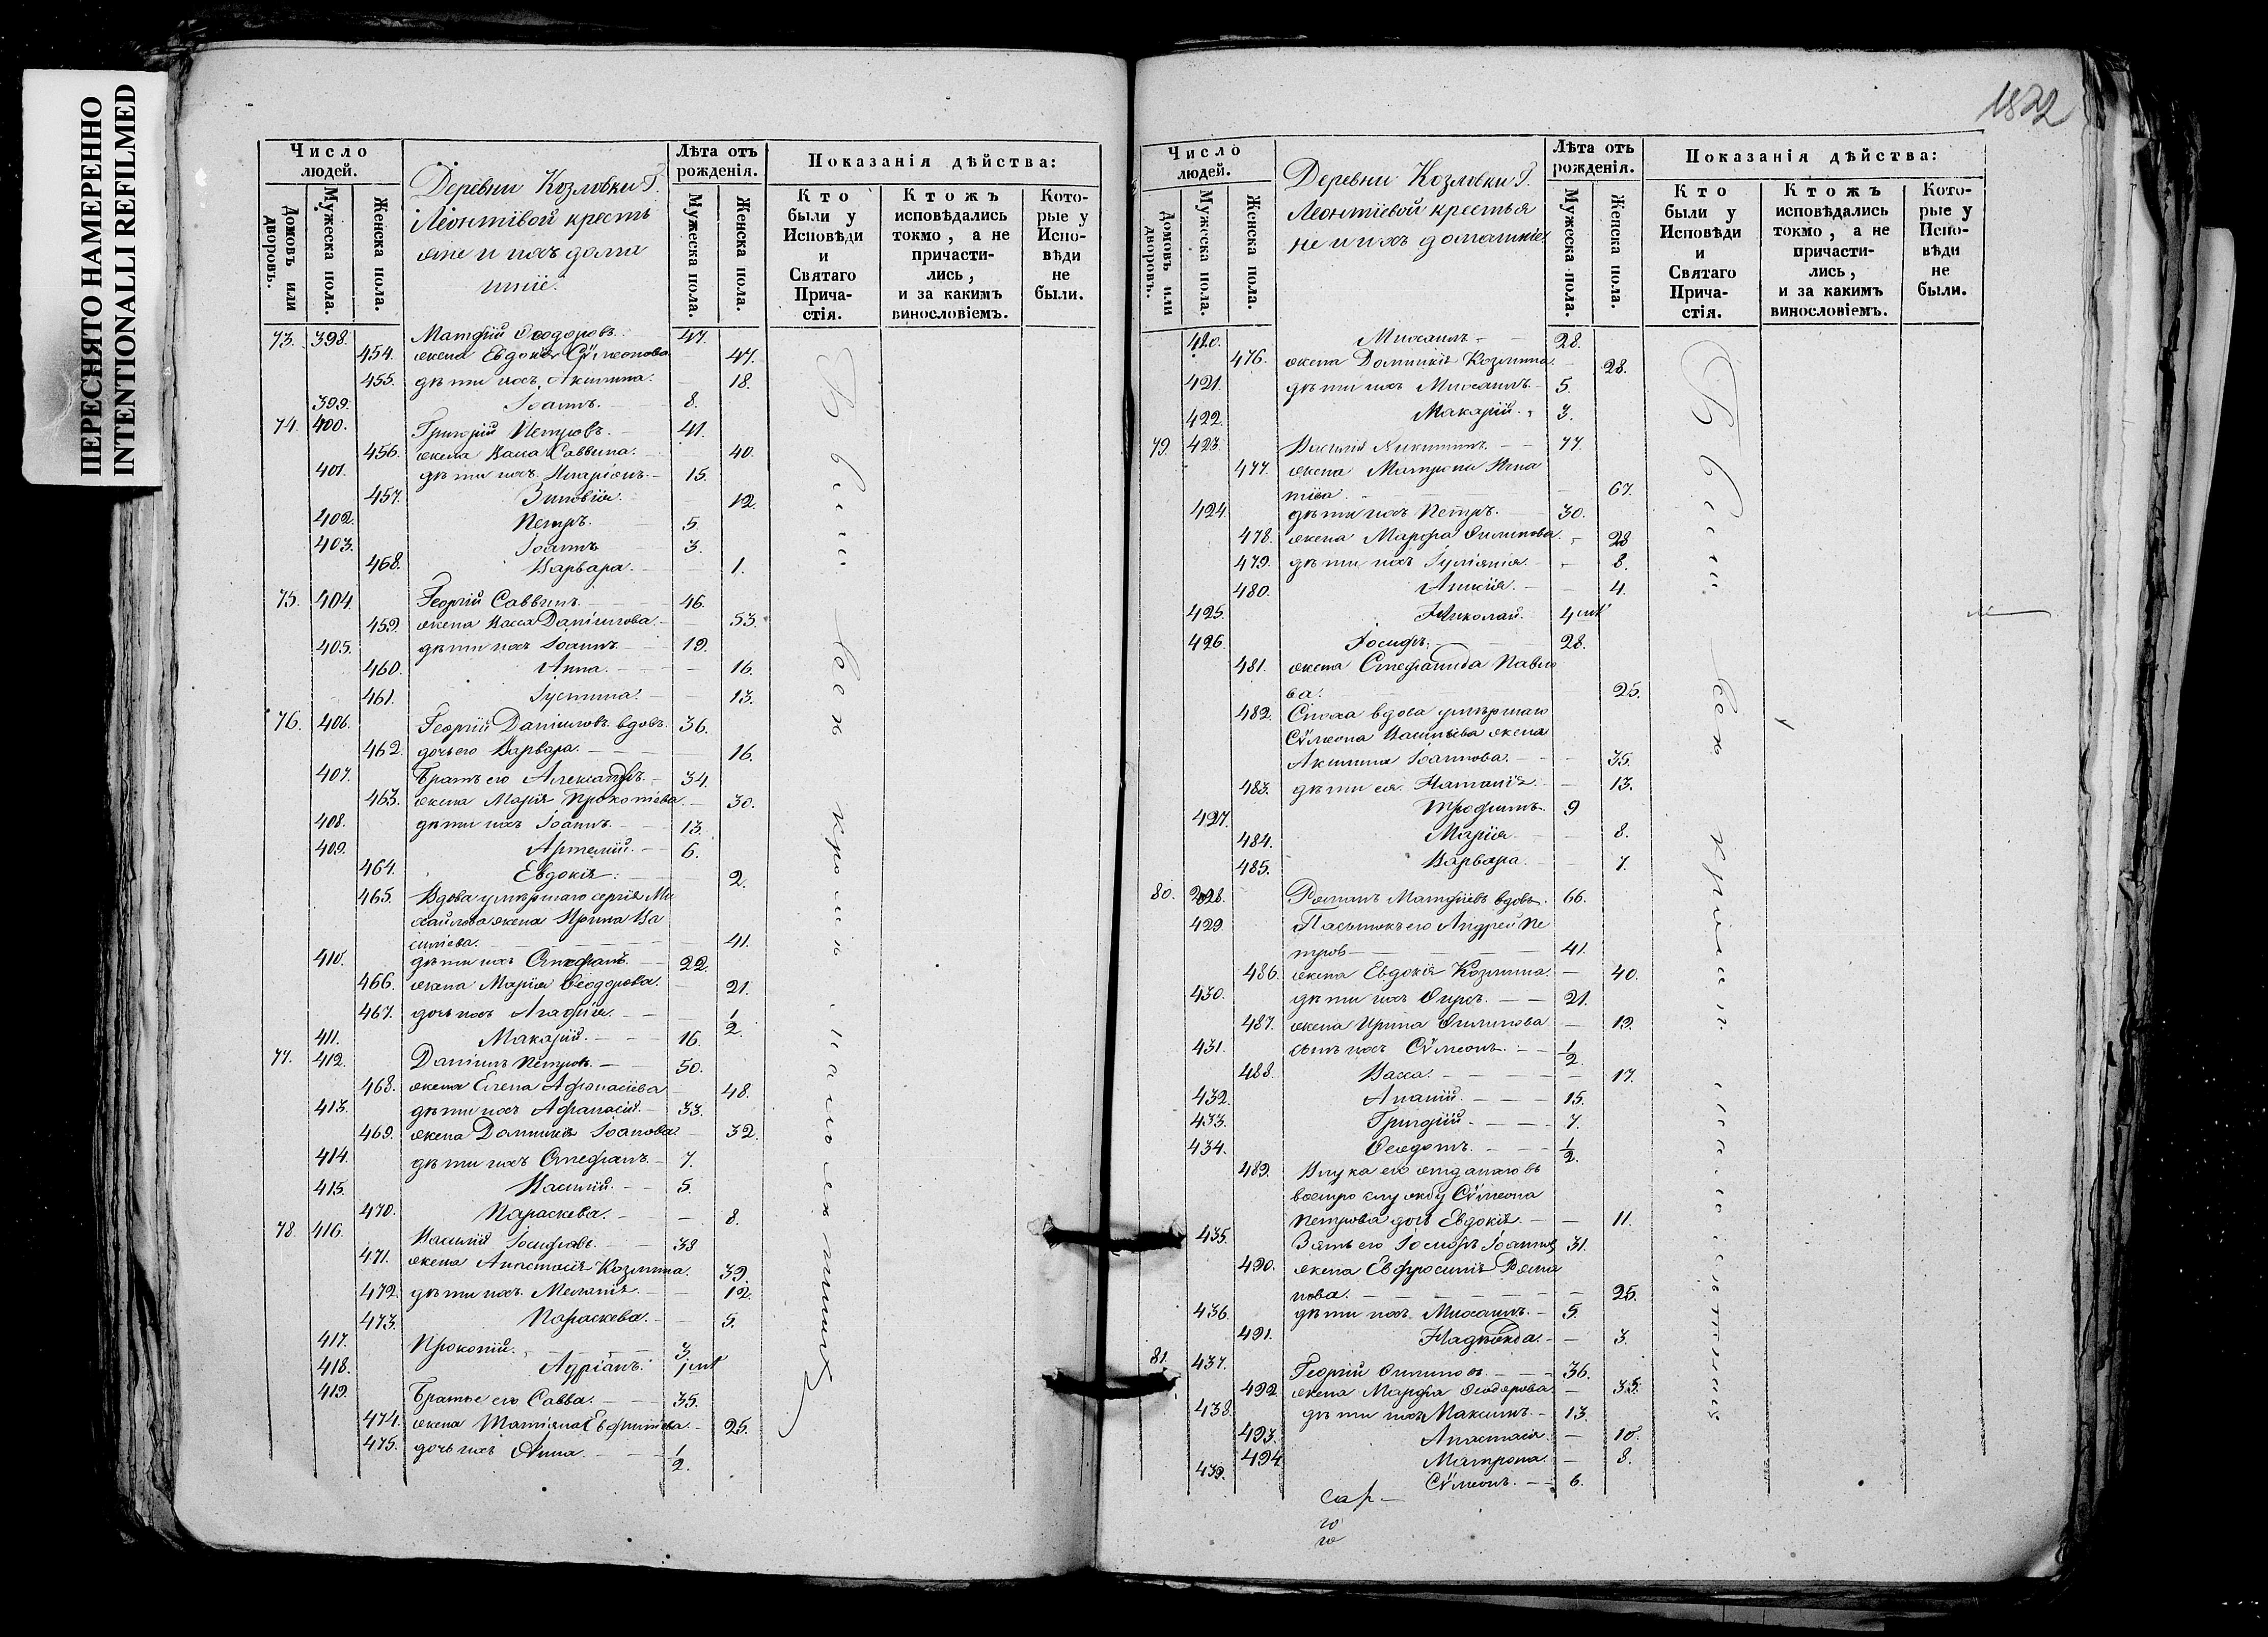 ПЕРЕСНЯТО НАМЕРЕННО
INTENTIONALLI REFILMED
Число людей.
Домовъ или дворовъ.
Мужеска пола.
Женска пола.
Деревни Козловки Г.
Леонтіевой кресть
яне и ихъ дома
шніе.
Лѣта отъ рожденія.
Мужеска пола.
Женска пола.
Показанія дѣйства:
Кто были у Исповѣди и Святаго Причастія.
Ктожъ исповѣдались токмо, а не причастились, и за какимъ винословіемъ.
Которые у Исповѣди не были.
73. 398. Матфій Ѳеодоровъ. 47.
454. жена Евдокія Сѵмеонова 47.
455. дѣти ихъ Акилина. — 18.
399. Іоаннъ. — 8.
74. 400. Григорій Петровъ. — 41.
456. жена Васса Саввина. — 40.
401. дѣти ихъ Иларіонъ. — 15.
457. Зиновія. — 12.
402. Петръ. 5.
403. Іоаннъ 3.
468. Варвара. — 1.
75. 404. Георгій Саввинъ. — 46.
459. жена Васса Даніилова. — 53.
405. дѣти ихъ Іоаннъ — 19.
460. Анна. — 16.
461. Іустина. — 13.
76. 406. Георгій Даніиловъ вдовъ. 36.
462. дочь его Варвара. — 16.
407. Братъ его Александръ. — 34.
463. жена Марія Прокопіева. — 30.
408. дѣти ихъ Іоаннъ. — 13.
409. Артемій. — 6.
464. Евдокія. — 2.
465. Вдова умершаго Сергія Ми
хайлова жена Ирина Ва
силіева. — 41.
410. дѣти ихъ Стефанъ. — 22.
466. жена Марія Ѳеодорова. — 21.
467. дочь ихъ Агафія. — 1/2.
411. Макарій. — 16.
77. 412. Даніилъ Петровъ. — 50.
468. жена Елена Афонасіева 48.
413. дѣти ихъ Афанасій. — 33.
469. жена Домникія Іоанова. — 32.
414. дѣти ихъ Стефанъ. — 7.
415. Василій. — 5.
470. Параскева. — 8.
78. 416. Василій Іосифовъ. — 38
471. жена Анастасія Козмина. 39.
472. дѣти ихъ Меланія. — 12.
473. Параскева. — 5.
417. Прокопій. — 3
418. Адріанъ.
419. Братъ его Савва. — 35.
474. жена Татіяна Евфиміева. — 25.
475. дочь ихъ Анна. — 1/2.
Число людей.
Домовъ или дворовъ.
Мужеска пола.
Женска пола.
Деревни Козловки Г.
Леонтіевой крестья
не и ихъ домашніе.
Лѣта отъ рожденія.
Мужеска пола.
Женска пола.
Показанія дѣйства:
Кто были у Исповѣди и Святаго Причастія.
Ктожъ исповѣдались токмо, а не причастились, и за какимъ винословіемъ.
Которые у Исповѣди не были.
420. Михаилъ — 28.
476. жена Домникія Козмина. 28.
421. дѣти ихъ Михаилъ — 5.
422. Макарій. 3.
79. 423. Василій Никитинъ. — 77.
477. жена Матрена Игна
тіева. — 67.
424. дѣти ихъ Петръ. — 30.
478. жена Марфа Филипова. 28
479. дѣти ихъ Іуліянія. — 8.
480. Анисія. — 4.
425. Николай.
426. Іосифъ. — 28.
481. жена Стефанида Павло
ва. 25.
482. Сноха вдова умершаго
Сѵмеона Васильева жена
Акилина Іоаннова. — 35.
483. дѣти ея Наталія. — 13.
427. Трофимъ. 9
484. Марія. — 8.
485. Варвара. — 7.
80. 428. Романъ Матфіевъ вдовъ. 66.
429 Пасынокъ его Андрей Пе
тровъ — 41.
486. жена Евдокія Козмина. — 40.
430. дѣти ихъ Фирсъ. — 21.
487. жена Ирина Филипова — 19.
431. сынъ ихъ Сѵмеонъ. — 1/2
488. Васса. — 17.
432. Ананій. — 15.
433. Григорій. — 7.
434. Ѳеодотъ. — 1/2.
489. Внука его отданаго въ
военую службу Сѵмеона
Петрова дочь Евдокія. — 11.
435. Зять его Іосифъ Іоанновъ 31.
490. жена Евфросинія Рома
нова. — 25.
436. дѣти ихъ Михаилъ. — 5.
491. Надѣжда. — 3.
81. 437. Георгій Филиповъ. — 36.
492. жена Марфа Ѳеодорова. — 35.
438. дѣти ихъ Максимъ. — 13.
493. Анастасія. — 10.
494 Матрона. — 8.
439. Сѵмеонъ. — 6.